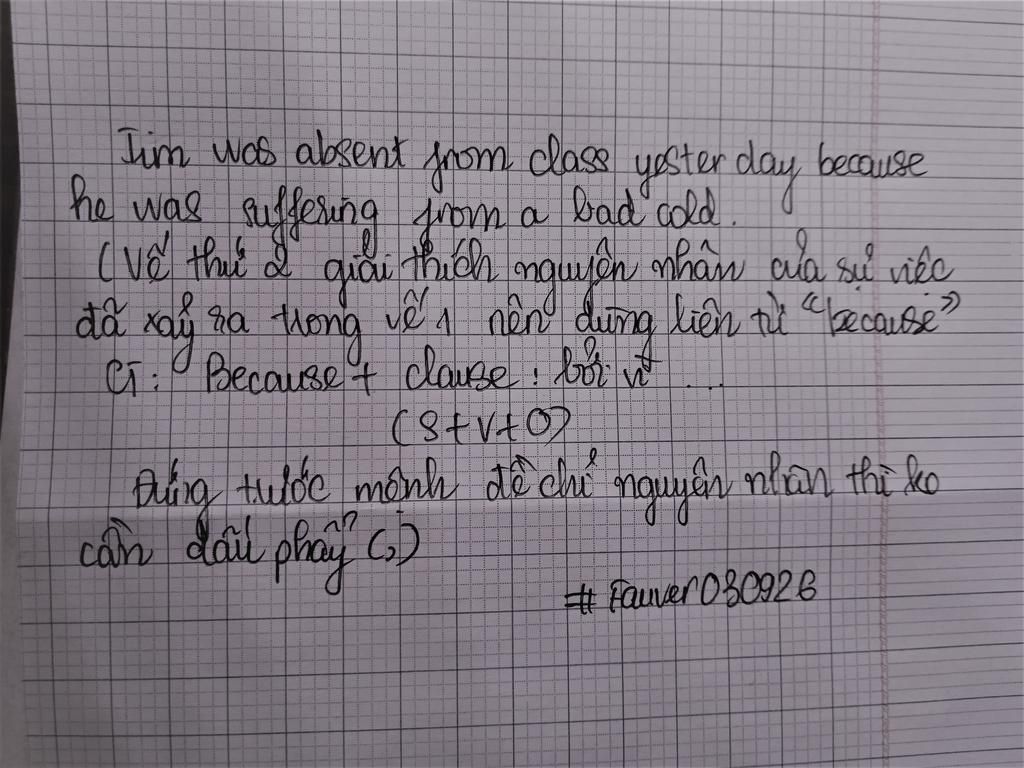 Jim was absent from class yesterday because
he was suffering from a bad cold.
(Vế thứ 2 giải thích nguyên nhân của sự việc
đã xảy ra trong vế 1 nên dùng liên từ "because"
CT: Because + clause : bởi vì ...
(S+V+O)
Đứng trước mệnh đề chỉ nguyên nhân thì ko
cần dấu phẩy (,)
# Fauver030926